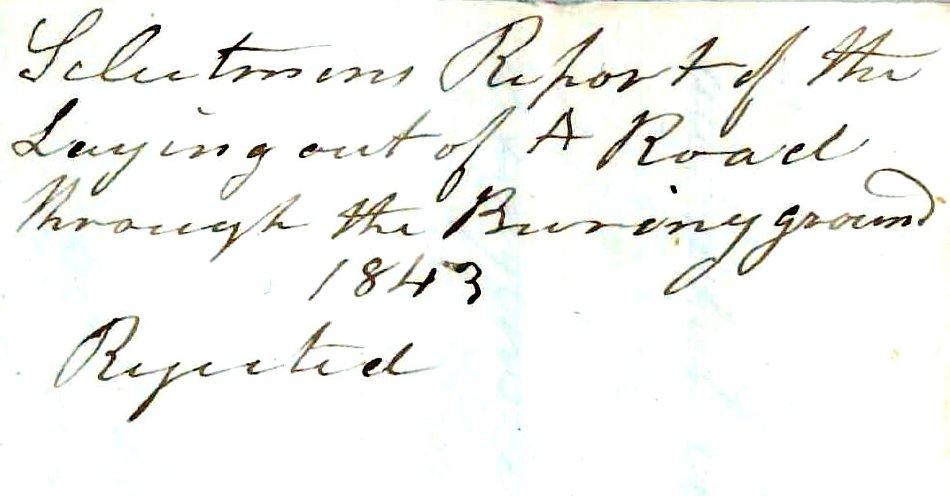 Selectmens Report of the
Laying out of A Road
through the Buring ground
1843
Rejected